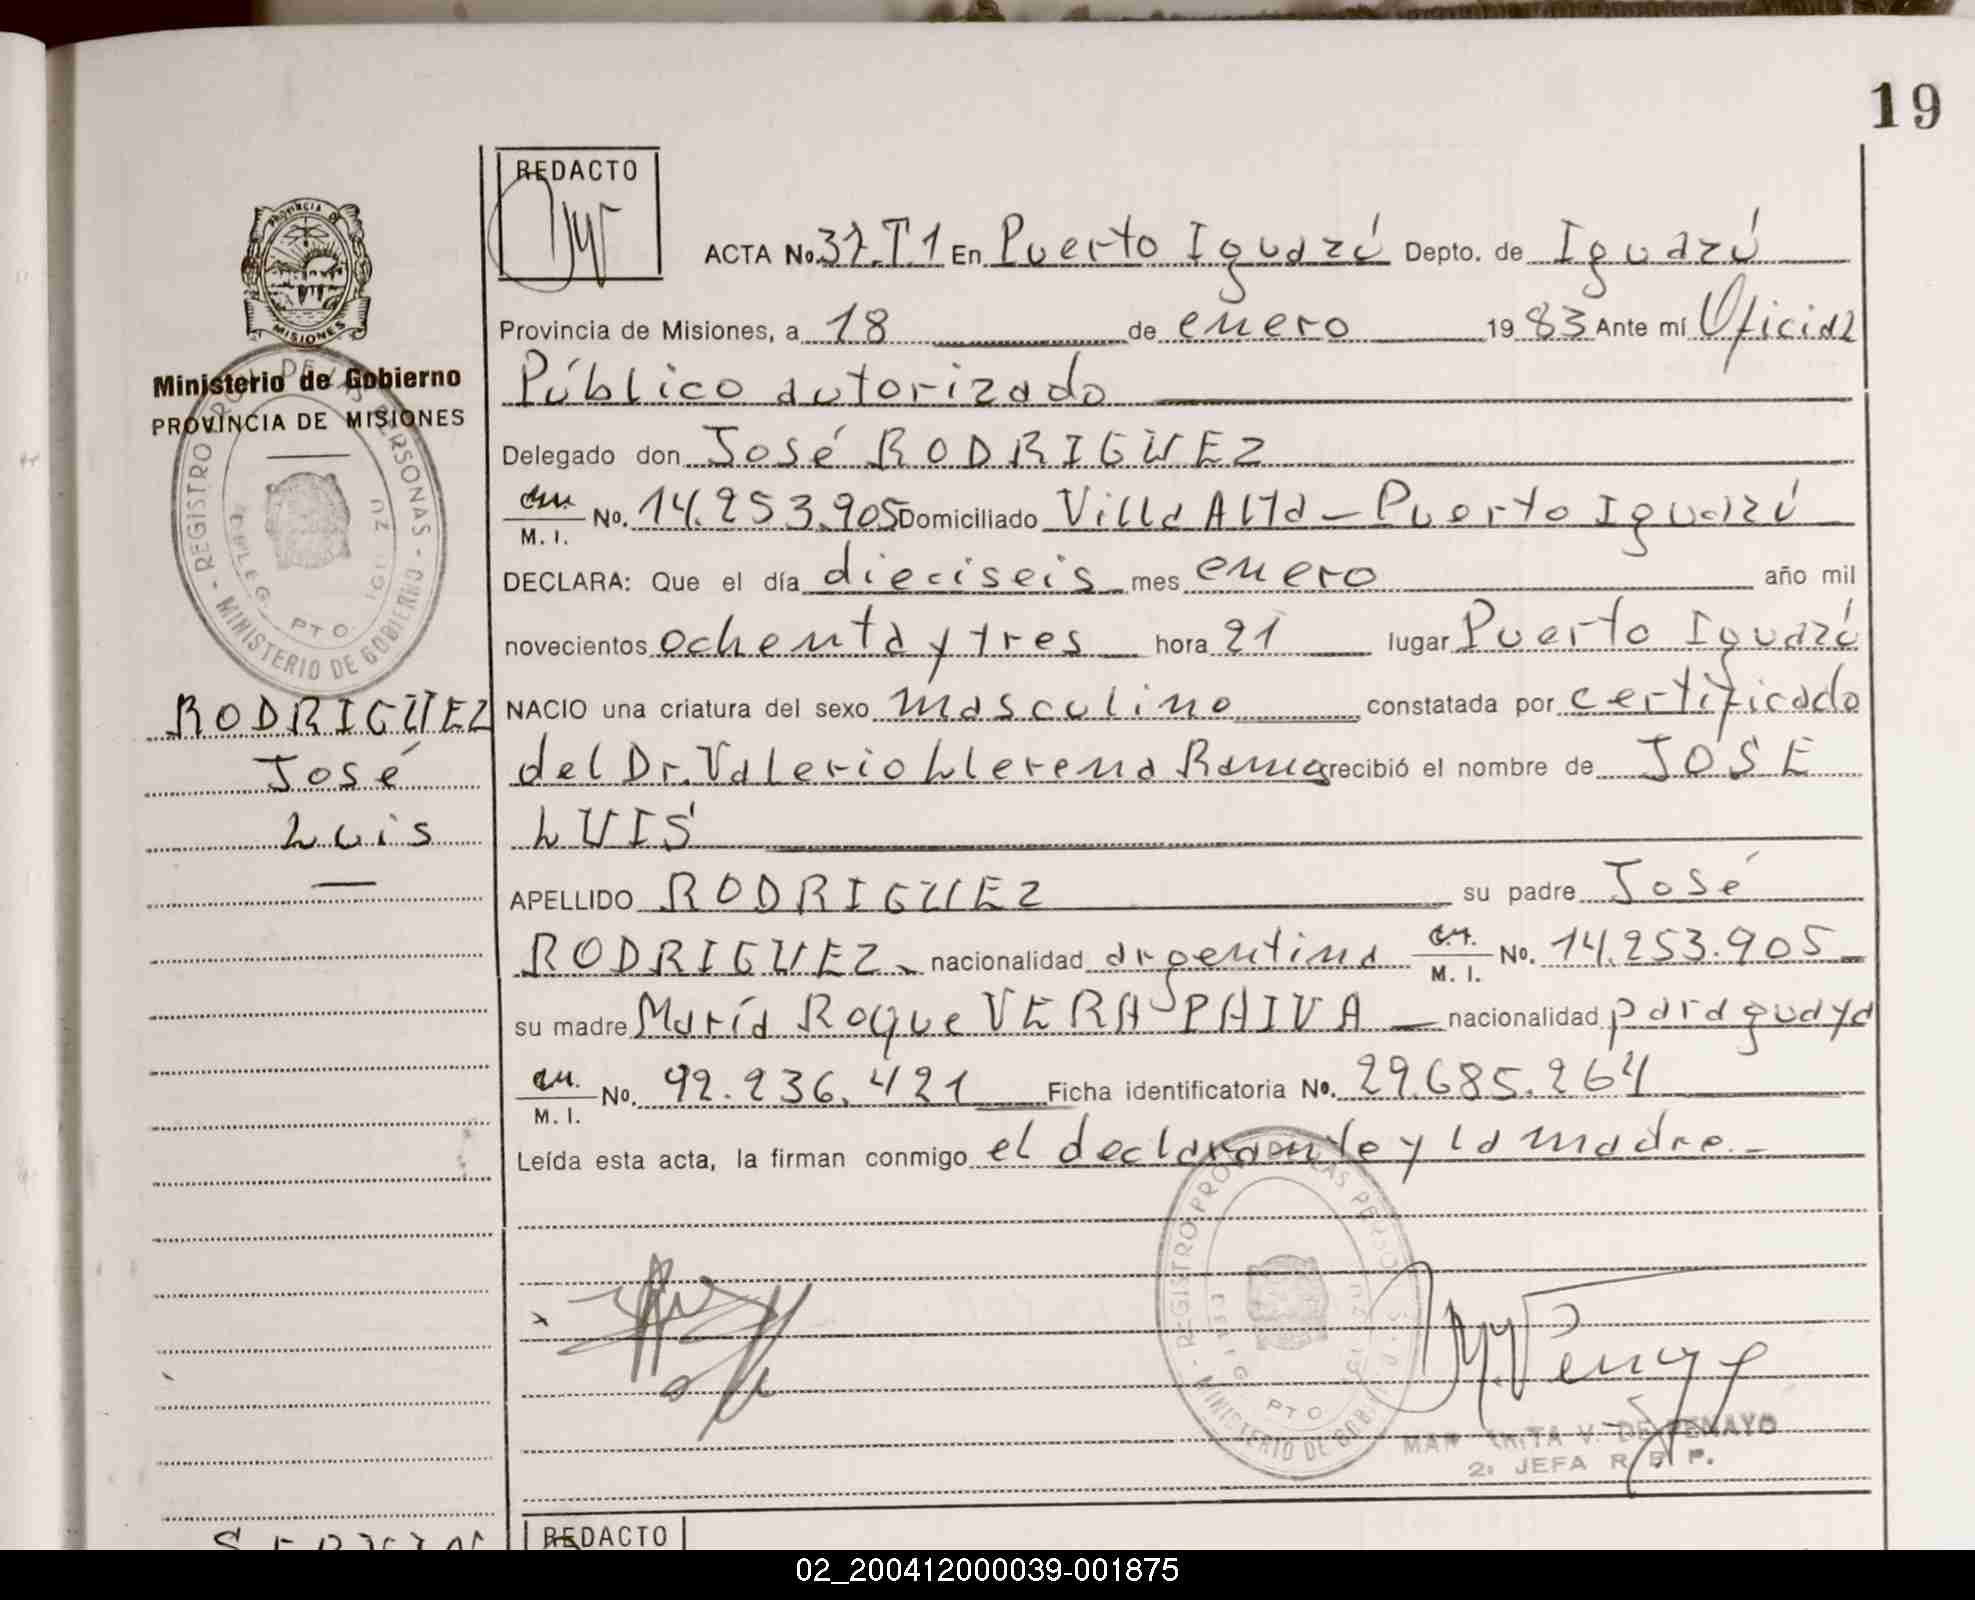 19
REDACTO
PROVINCIA DE
MISIONES
ACTA No. 37.T.1 En Puerto Iguazú Depto. de Iguazú
Provincia de Misiones, a 18 de enero 19 83 Ante mí Oficial
Ministerio de Gobierno
PROVINCIA DE MISIONES
Público autorizado
Delegado don José RODRIGÜEZ
M. I. No. 14.253.905 Domiciliado Villa Alta - Puerto Iguazú
DECLARA: Que el día dieciseis mes enero año mil
novecientos ochenta y tres hora 21 lugar Puerto Iguazú
RODRIGÜEZ
José
Luis
NACIO una criatura del sexo masculino constatada por certificado
del Dr. Valerio Llerena Ramos recibió el nombre de JOSÉ
LUIS
APELLIDO RODRIGÜEZ su padre José
RODRIGÜEZ nacionalidad argentina M. I. No. 14.253.905
su madre María Roque VERA PAIVA nacionalidad paraguaya
M. I. No. 92.236.421 Ficha identificatoria No. 29.685.264
Leída esta acta, la firman conmigo el declarante y la madre.-
REGISTRO DE LAS PERSONAS - MINISTERIO DE GOBIERNO
DELEG. PTO. IGUAZU
V. DE PENAYO
JEFA R. P.
REDACTO
02_200412000039-001875